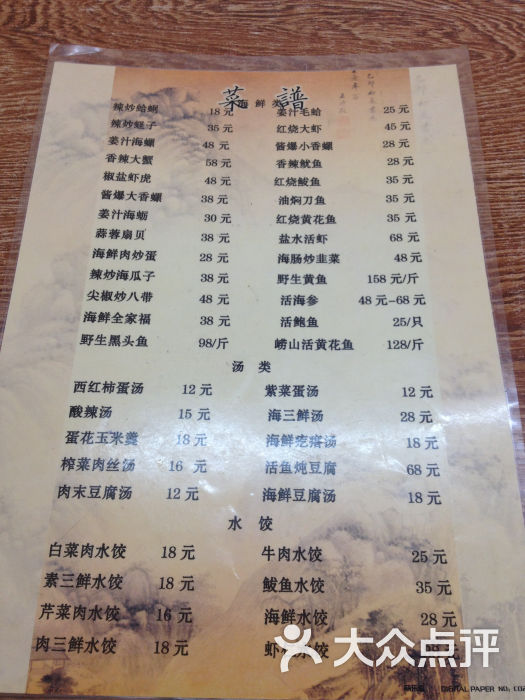 菜 谱
海鲜类
辣炒蛤蜊 18元 姜汁毛蛤 25元
辣炒蛏子 35元 红烧大虾 45元
姜汁海螺 48元 酱爆小香螺 28元
香辣大蟹 58元 香辣鱿鱼 28元
椒盐虾虎 48元 红烧鲅鱼 35元
酱爆大香螺 38元 油焖刀鱼 35元
姜汁海蛎 30元 红烧黄花鱼 35元
蒜蓉扇贝 38元 盐水活虾 68元
海鲜肉炒蛋 28元 海肠炒韭菜 48元
辣炒海瓜子 38元 野生黄鱼 158元/斤
尖椒炒八带 48元 活海参 48元-68元
海鲜全家福 38元 活鲍鱼 25/只
野生黑头鱼 98/斤 崂山活黄花鱼 128/斤
汤类
西红柿蛋汤 12元 紫菜蛋汤 12元
酸辣汤 15元 海三鲜汤 28元
蛋花玉米羹 18元 海鲜疙瘩汤 18元
榨菜肉丝汤 16元 活鱼炖豆腐 68元
肉末豆腐汤 12元 海鲜豆腐汤 18元
水饺
白菜肉水饺 18元 牛肉水饺 25元
素三鲜水饺 18元 鲅鱼水饺 35元
芹菜肉水饺 16元 海鲜水饺 28元
肉三鲜水饺 18元 虾 水饺
大众点评
DIGITAL PAPER NO.